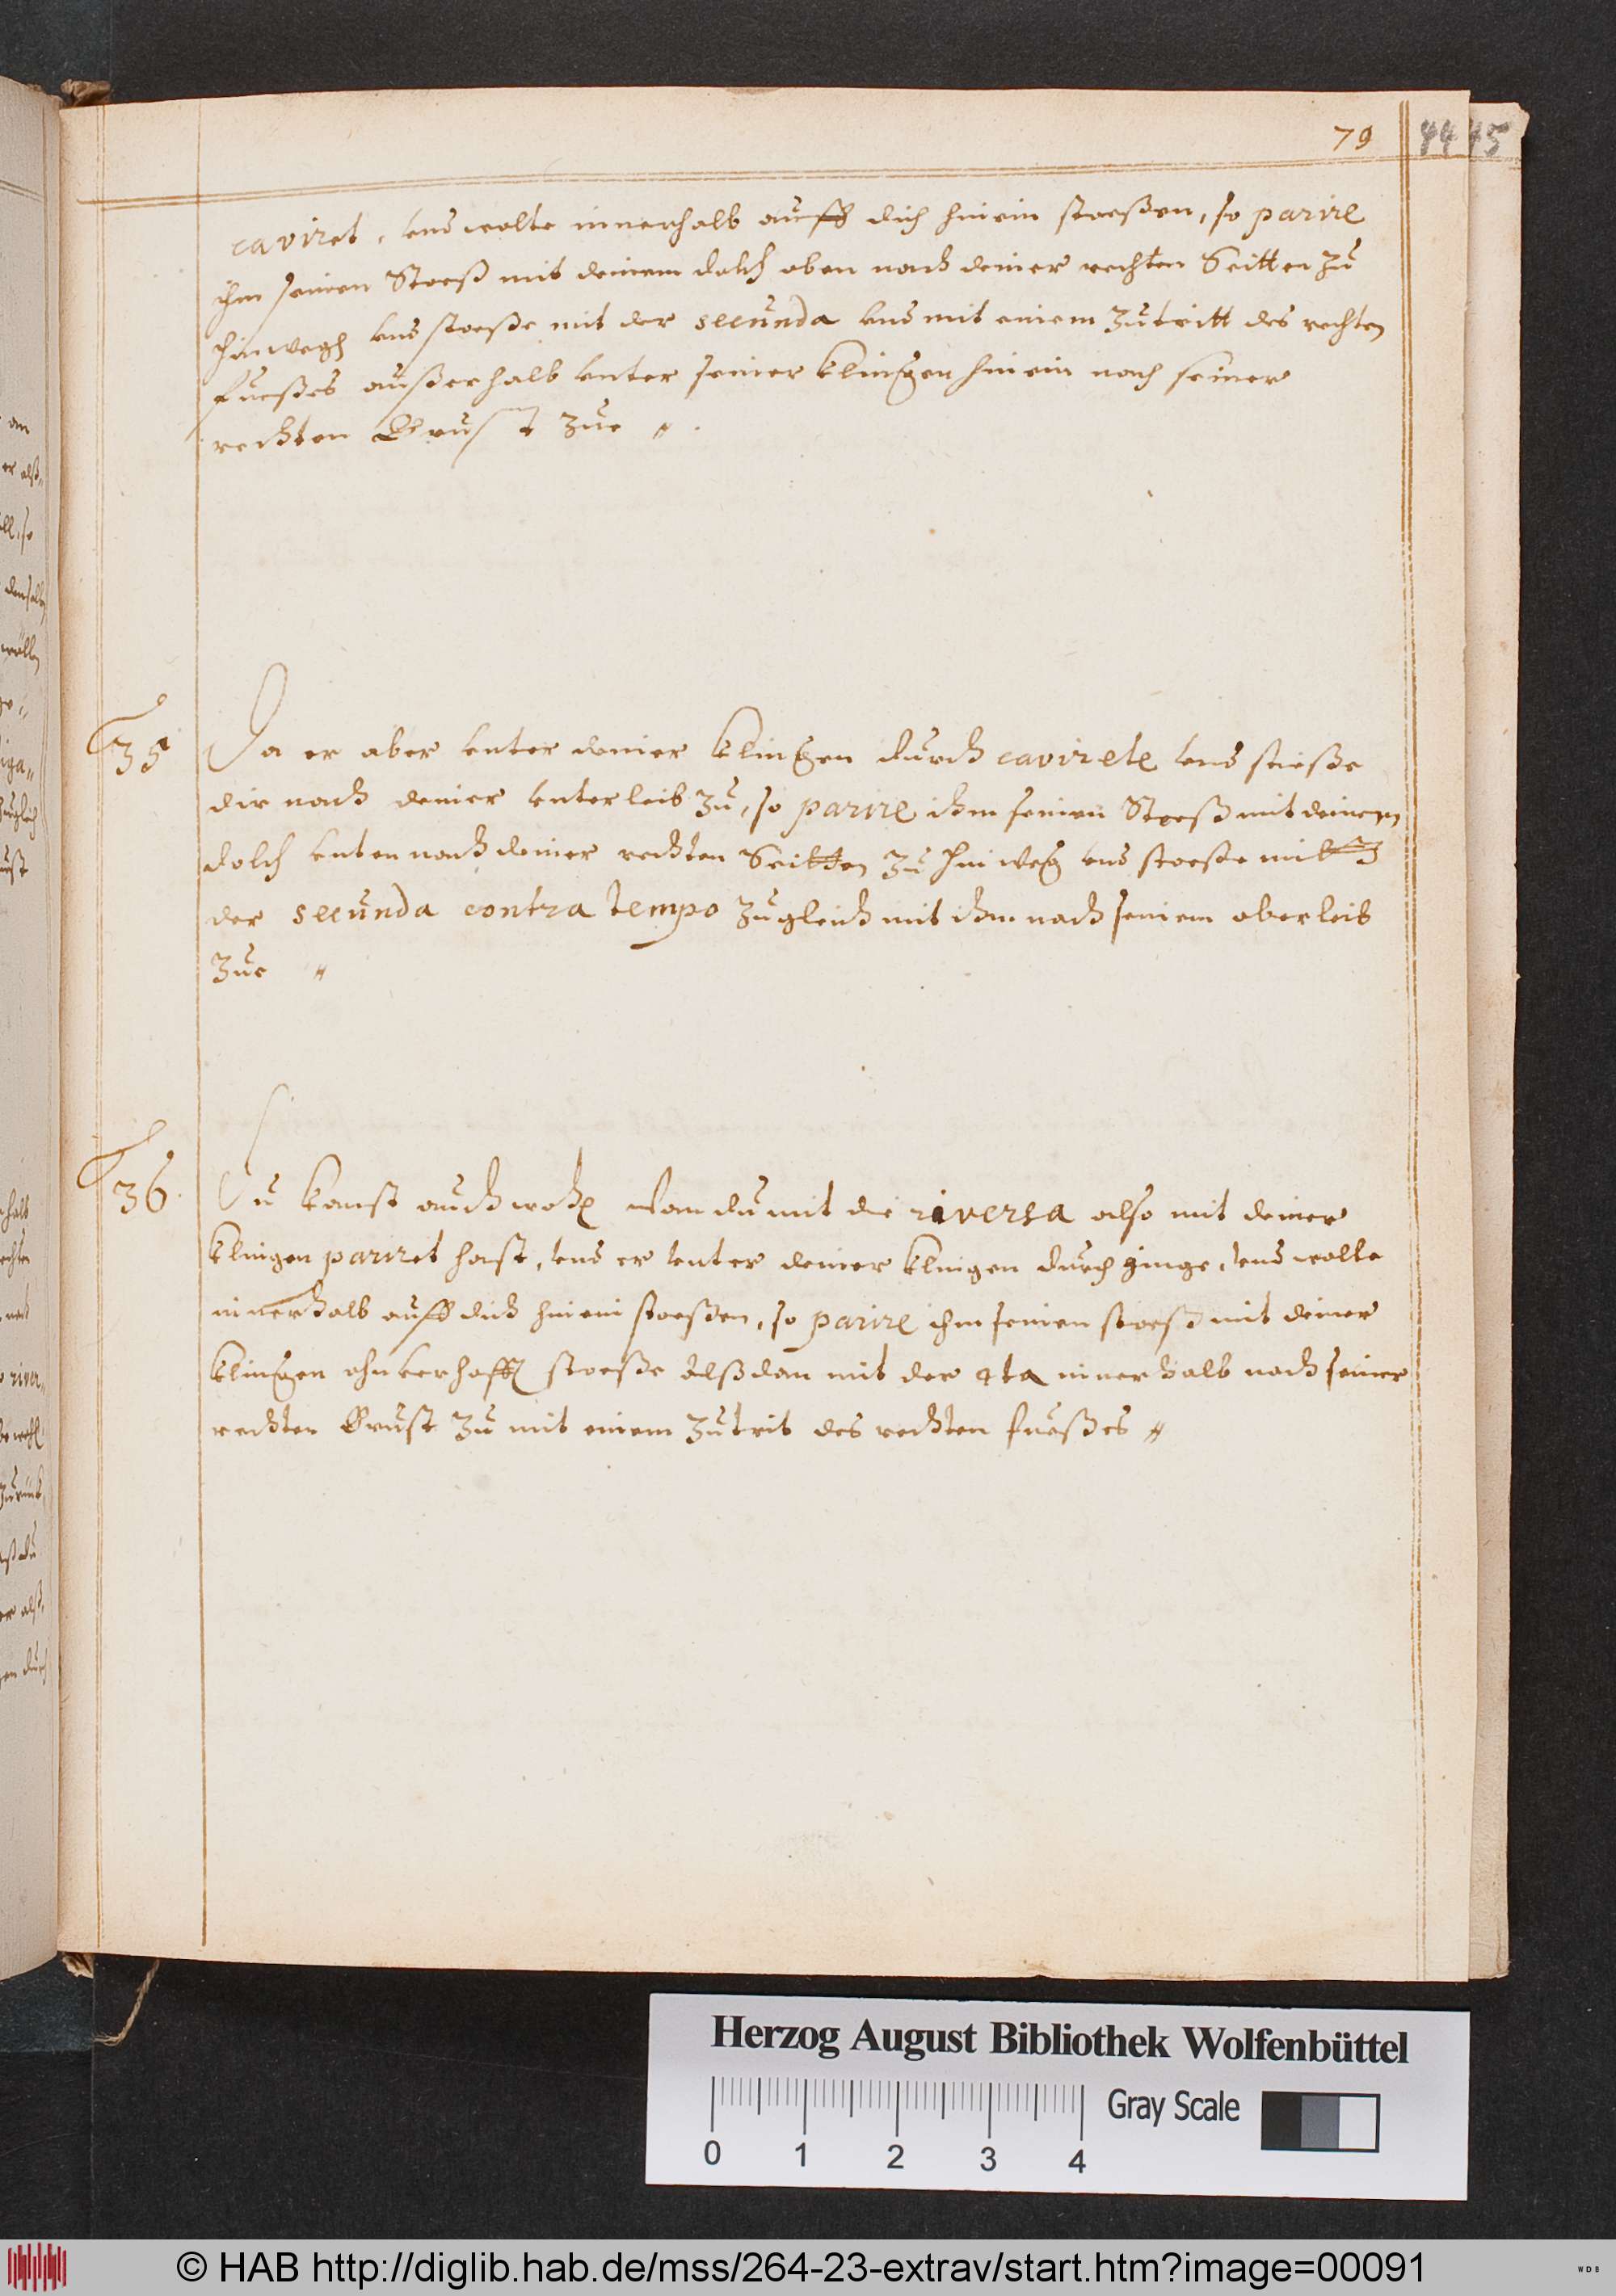 79
44 45
caviret, vnd wolte innerhalb auff dich hinein stoeßen, so parire
ihm seinen Stoeß mit deinem dolch oben nach deiner rechten Seitten zu
hinwegh vnd stoeße mit der secunda vnd mit einem zutritt des rechten
fueßes außerhalb vnter seiner klingen hinein nach seiner
rechten Brust zue
35
Da er aber vnter deiner klingen durch cavirete vnd stieße
dir nach deiner vnterleib zu, so parire ihm seinen Stoeß mit deinem
dolch vnten nach deiner rechten Seitten zu hinweg vnd stoeße mit
der secunda contra tempo zugleich mit ihm nach seinem oberleib
zue
36
Du kanst auch wohl wan du mit die riversa also mit deiner
klingen pariret hast, vnd er vnter deiner klingen durch ginge, vnd wolte
innerhalb auff dich hinein stoeßen, so parire ihm seinen stoeß mit deiner
klingen ohnverhafft stoeße alßdan mit der 4ta innerhalb nach seiner
rechten Brust zu mit einem zutrit des rechten fueßes
Herzog August Bibliothek Wolfenbüttel
Gray Scale
0 1 2 3 4
© HAB http://diglib.hab.de/mss/264-23-extrav/start.htm?image=00091
WDB